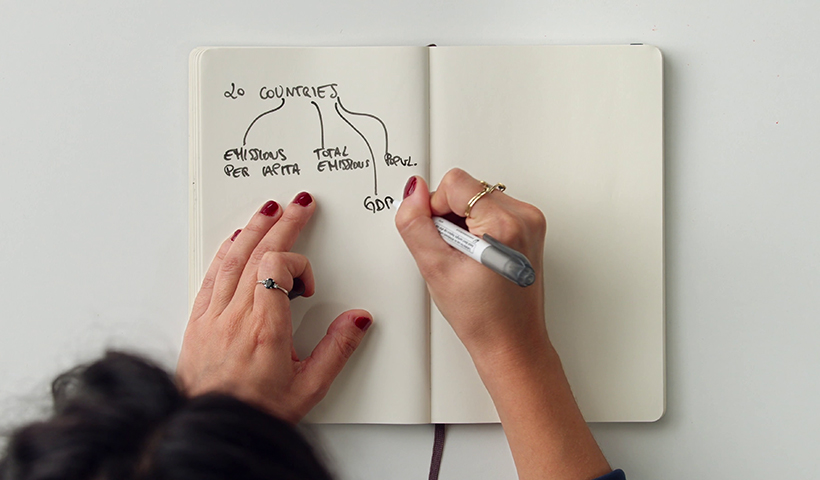 20 COUNTRIES
EMISSIONS
PER CAPITA
TOTAL
EMISSIONS
POPUL.
GDP